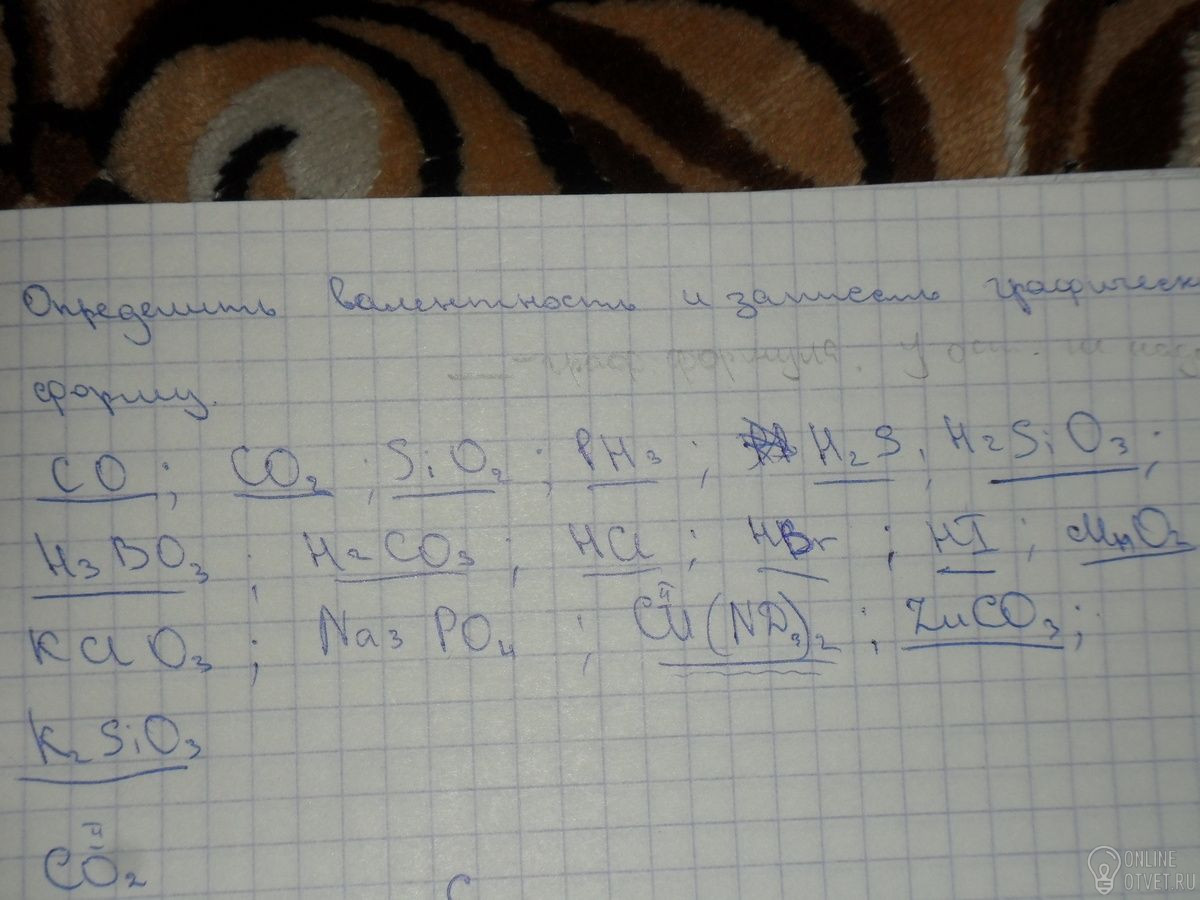 Определить валентность и записать графическ
форму.
граф. формула. У
CO; CO₂; SiO₂; PH₃; H₂S; H₂SiO₃;
H₃BO₃; H₂CO₃; HCl; HBr; HI; MnO₂
KClO₃; Na₃PO₄; Cu(NO₃)₂; ZnCO₃;
II
K₂SiO₃
II
CO₂
C
ONLINE
OTVET.RU